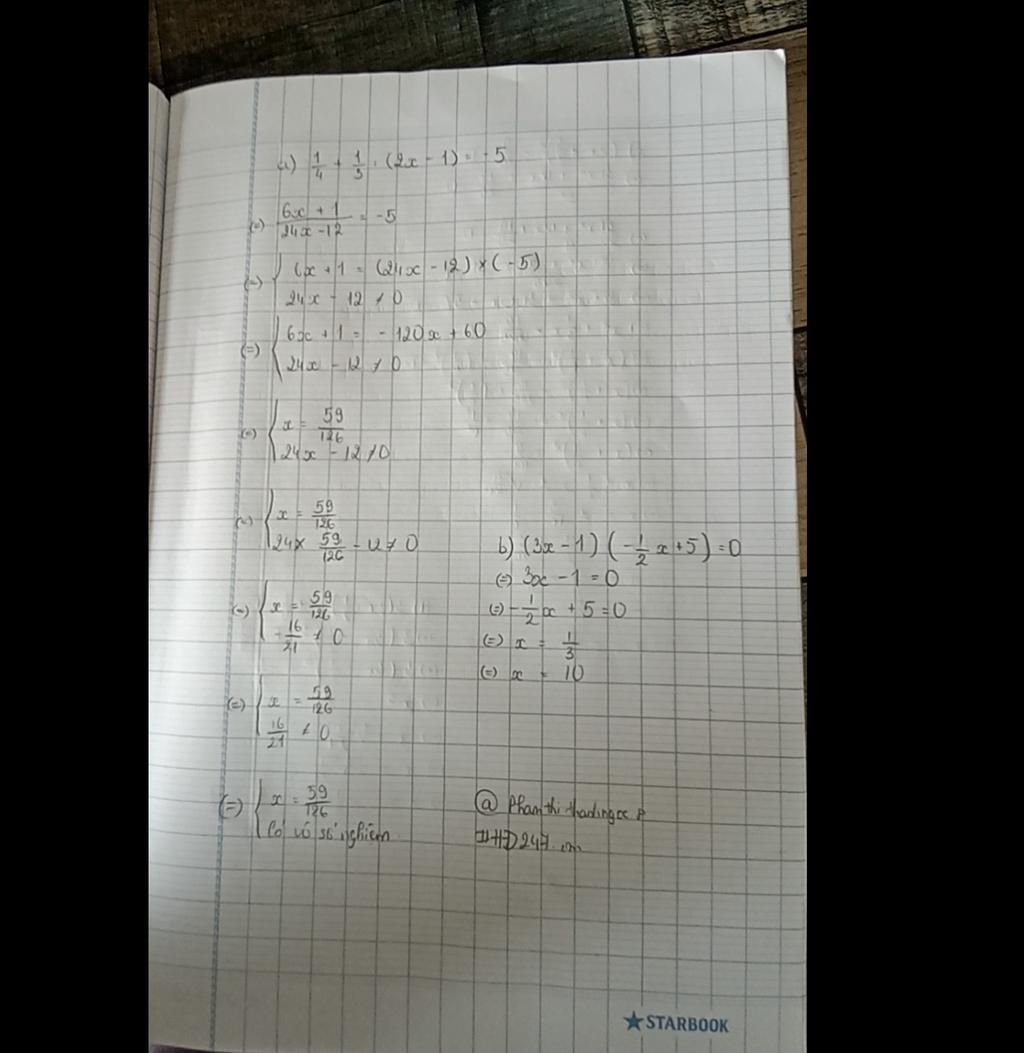 a) 1/4 + 1/3 : (2x - 1) = -5
(=) (6x + 1)/(24x - 12) = -5
(=) { 6x + 1 = (24x - 12) × (-5)
24x - 12 ≠ 0
(=) { 6x + 1 = -120x + 60
24x - 12 ≠ 0
(=) { x = 59/126
24x - 12 ≠ 0
(=) { x = 59/126
24 × 59/126 - 12 ≠ 0
(=) { x = 59/126
-16/21 ≠ 0
(=) { x = 59/126
16/21 ≠ 0
(=) { x = 59/126
Có vô số nghiệm
b) (3x - 1) (-1/2 x + 5) = 0
(=) 3x - 1 = 0
(=) -1/2 x + 5 = 0
(=) x = 1/3
(=) x = 10
@ Phamthi
247
★STARBOOK